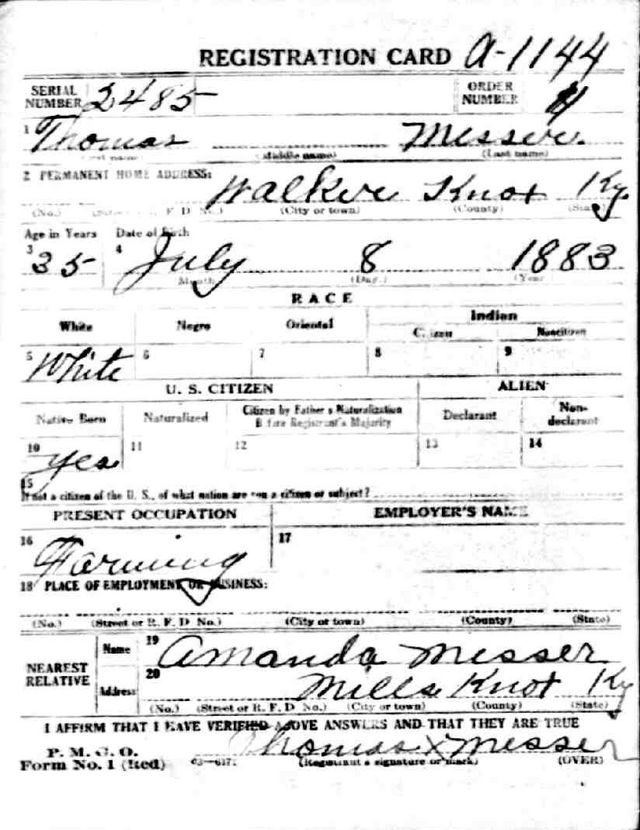 REGISTRATION CARD A-1144
SERIAL NUMBER 2485 ORDER NUMBER
1 Thomas Messer.
(First name) (Middle name) (Last name)
2 PERMANENT HOME ADDRESS: Walker Knox Ky
(No.) (Street or R. F. D. No.) (City or town) (County) (State)
Age in Years Date of Birth
3 35 4 July 8 1883
(Month) (Day.) (Year)
RACE
White Negro Oriental Indian
Citizen Noncitizen
5 White 6 7 8 9
U. S. CITIZEN ALIEN
Native Born Naturalized Citizen by Father's Naturalization Before Registrant's Majority Declarant Non-declarant
10 yes 11 12 13 14
15
If not a citizen of the U. S., of what nation are you a citizen or subject?
PRESENT OCCUPATION EMPLOYER'S NAME
16 Farming 17
18 PLACE OF EMPLOYMENT OR BUSINESS:
(No.) (Street or R. F. D. No.) (City or town) (County) (State)
NEAREST RELATIVE Name 19 Amanda Messer
Address 20 Mills Knox Ky
(No.) (Street or R. F. D. No.) (City or town) (County) (State)
I AFFIRM THAT I HAVE VERIFIED ABOVE ANSWERS AND THAT THEY ARE TRUE
P. M. G. O.
Form No. 1 (Red) 03-6171 Thomas x Messer
(Registrant's signature or mark) (OVER)